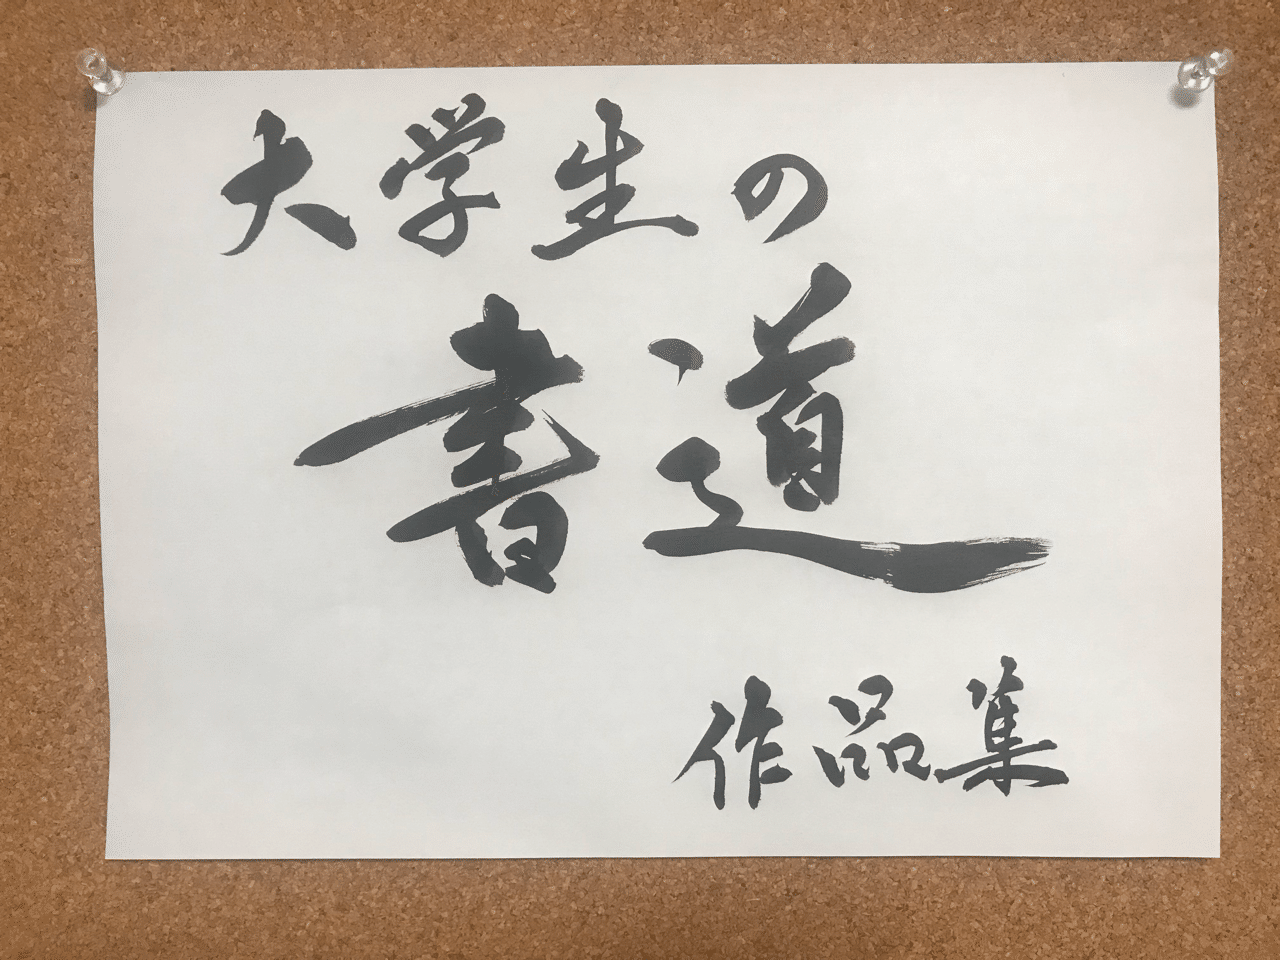 大学生の
書道
作品集